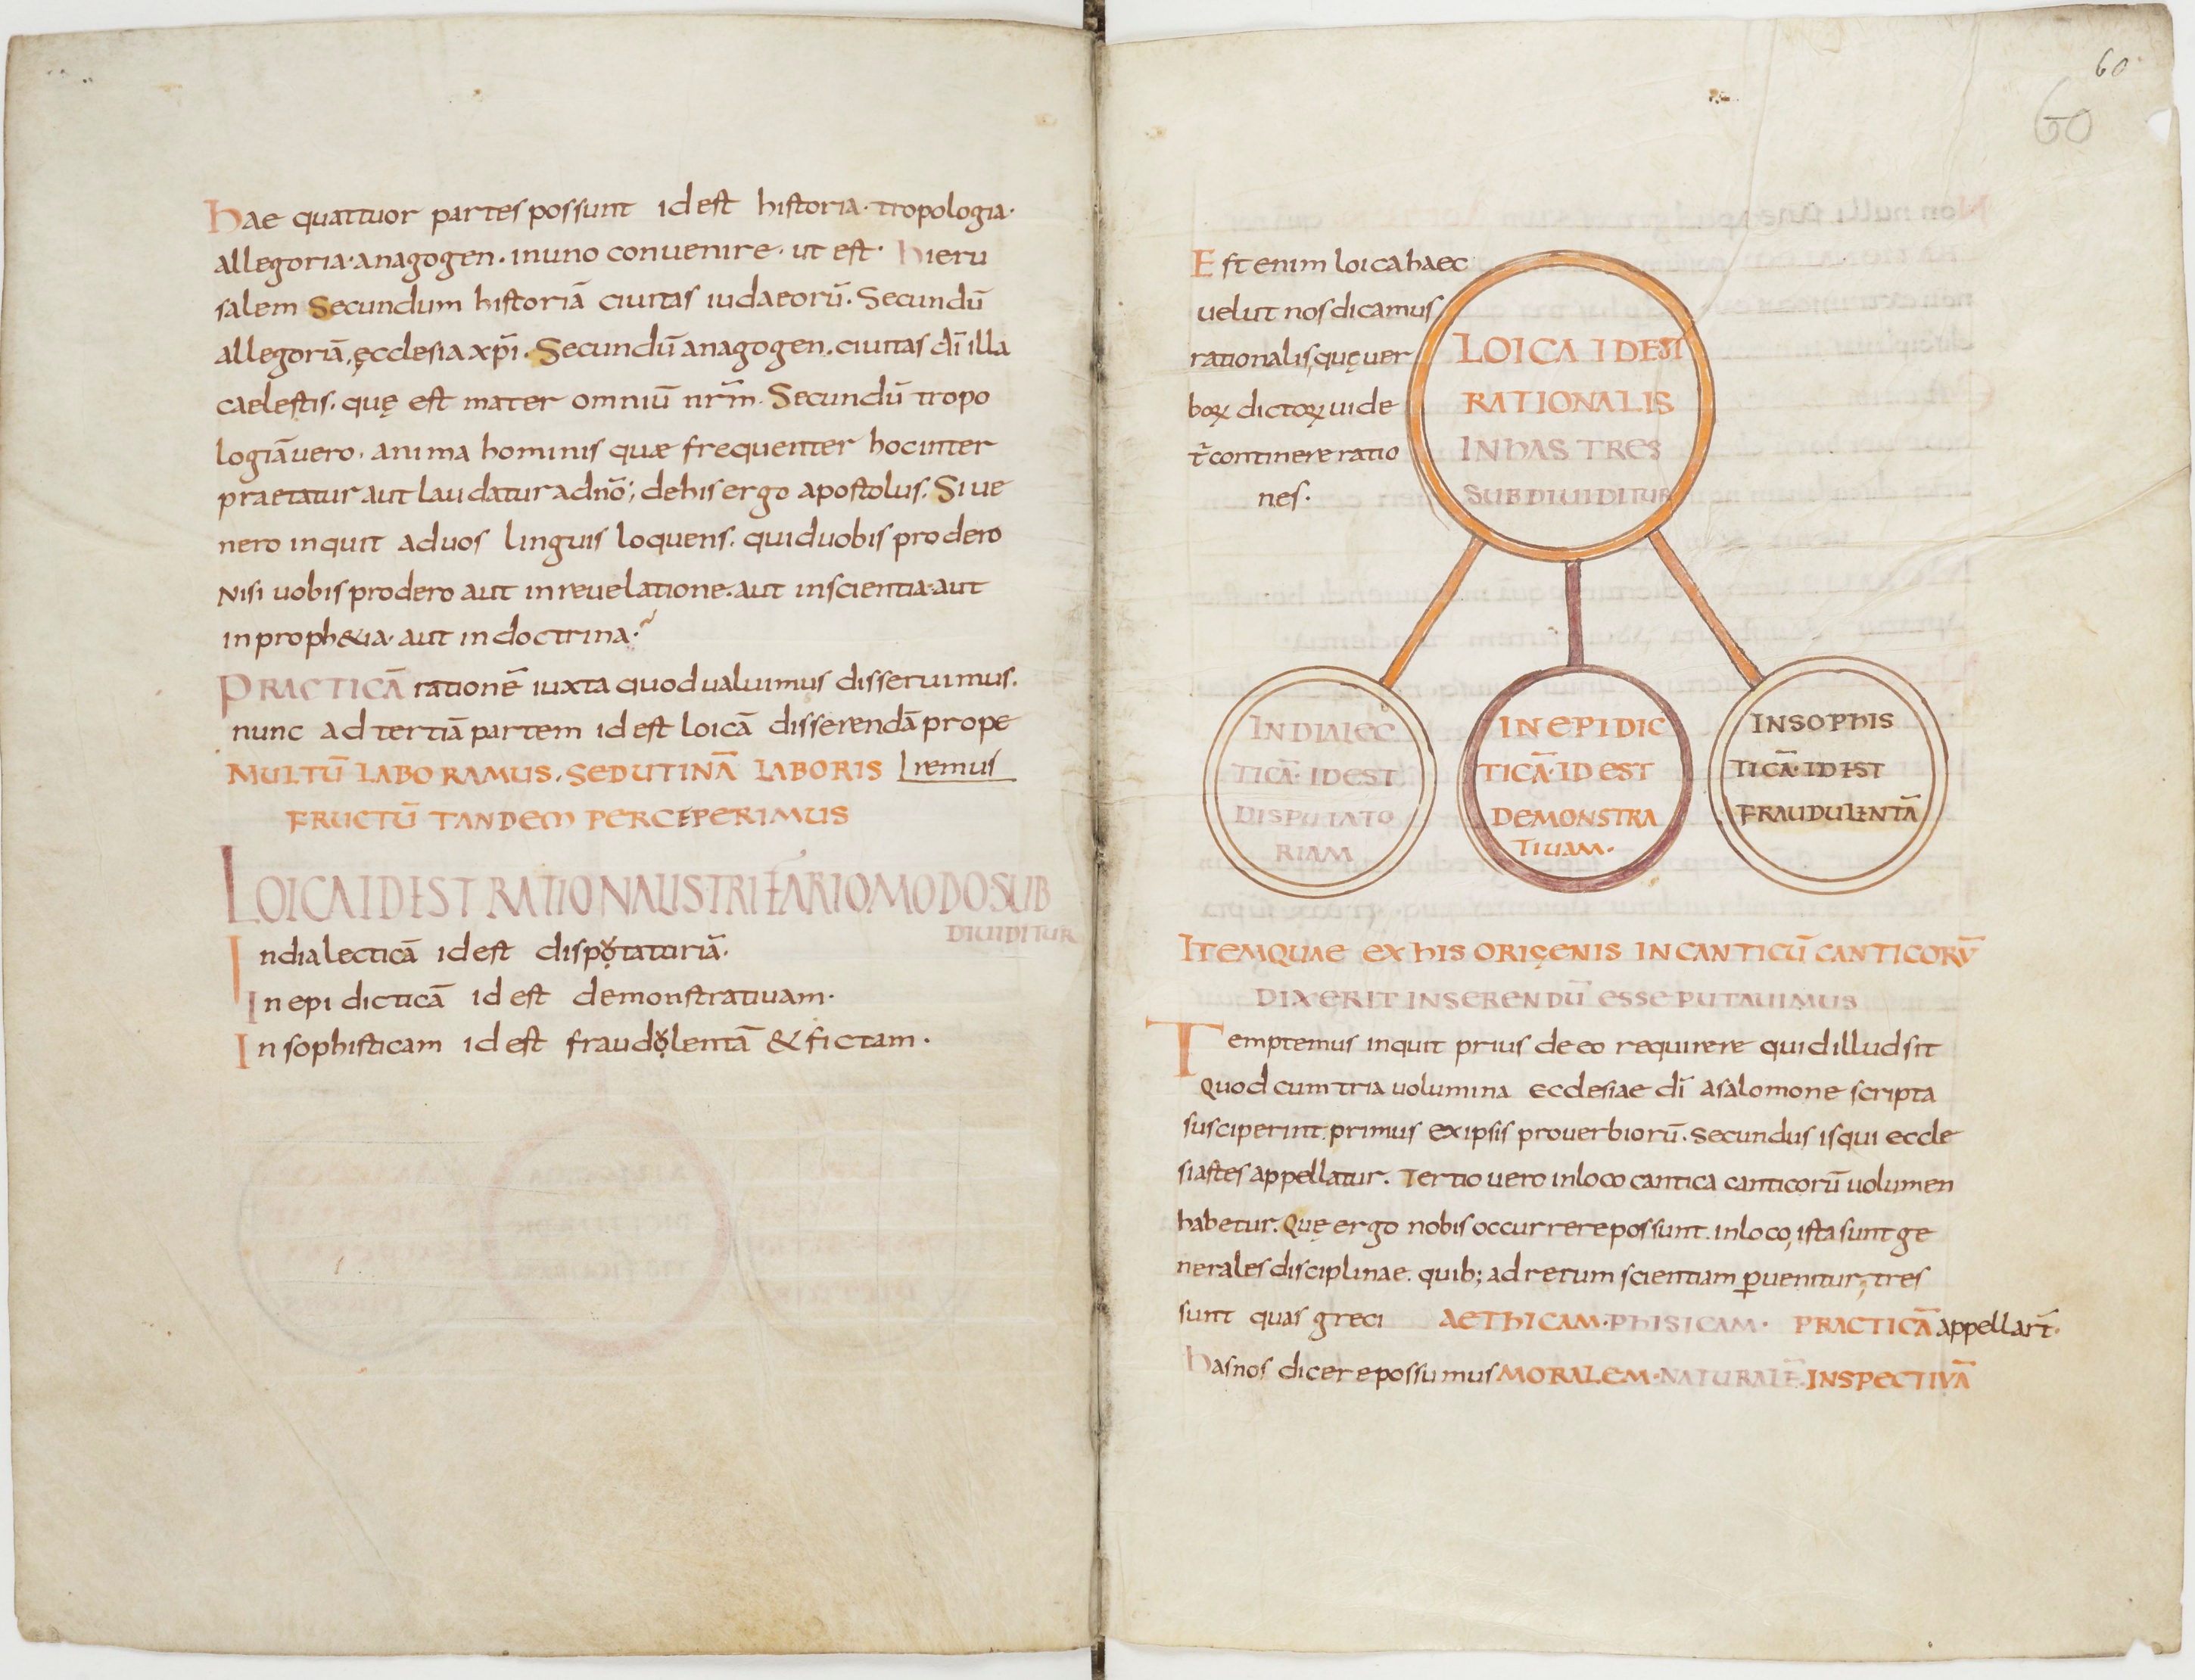 hae quattuor partes possunt id est historia· tropologia·
allegoria· anagogen· in uno convenire· ut est· hieru
salem Secundum historiā ciuitas iudaeorū. Secundū
allegoriā, ęcclesia xp̄i. Secundū anagogen. ciuitas dī illa
caelestis. quę est mater omniū nr̄m. Secundū tropo
logiā uero. anima hominis quae frequenter hoc inter
praetatur aut laudatur a dn̄o; de his ergo apostolus. Si ue
nero inquit ad uos linguis loquens. quid uobis prodero
Nisi uobis prodero aut in reuelatione. aut in scientia· aut
in proph&ia· aut in doctrina·
PRACTICĀ rationē iuxta quod ualuimus disseruimus.
nunc ad tertiā partem id est loicā disserendā prope
MULTŪ LABORAMUS. SED UT INĀ LABORIS remus
FRUCTŪ TANDEM PERCEPERIMUS
LOICA ID EST RATIONALIS TRIFARIO MODO SUB
DIUIDITUR
In dialecticā id est disputatoriā.
In epidicticā id est demonstratiuam·
In sophisticam id est fraudolentā & fictam·
60
60
Est enim loica haec
uelut nos dicamus
rationalis, quę uer
boꝝ dictoꝝ uide
t̄ continere ratio
nes.
LOICA ID EST
RATIONALIS
IN HAS TRES
SUBDIUIDITUR
IN DIALEC
TICĀ· ID EST
DISPUTATO
RIAM
IN EPIDIC
TICĀ· ID EST
DEMONSTRA
TIUAM·
IN SOPHIS
TICĀ· ID EST
FRAUDULENTĀ
ITEM QUAE EX HIS ORIGENIS IN CANTICŪ CANTICORŪ
DIXERIT INSERENDŪ ESSE PUTAUIMUS
Temptemus inquit prius de eo requirere quid illud sit
Quod cum tria uolumina ecclesiae dī a salomone scripta
susciperint. primus ex ipsis prouerbiorū. secundus is qui eccle
siastes appellatur. Tertio uero in loco cantica canticorū uolumen
habetur. Quę ergo nobis occurrere possunt. in loco, ista sunt ge
nerales disciplinae. quib; ad rerum scientiam ꝑuenitur, tres
sunt quas greci AETHICAM· PHISICAM· PRACTICĀ appellart̄·
has nos dicere possumus MORALEM· NATURALĒ· INSPECTIVĀ